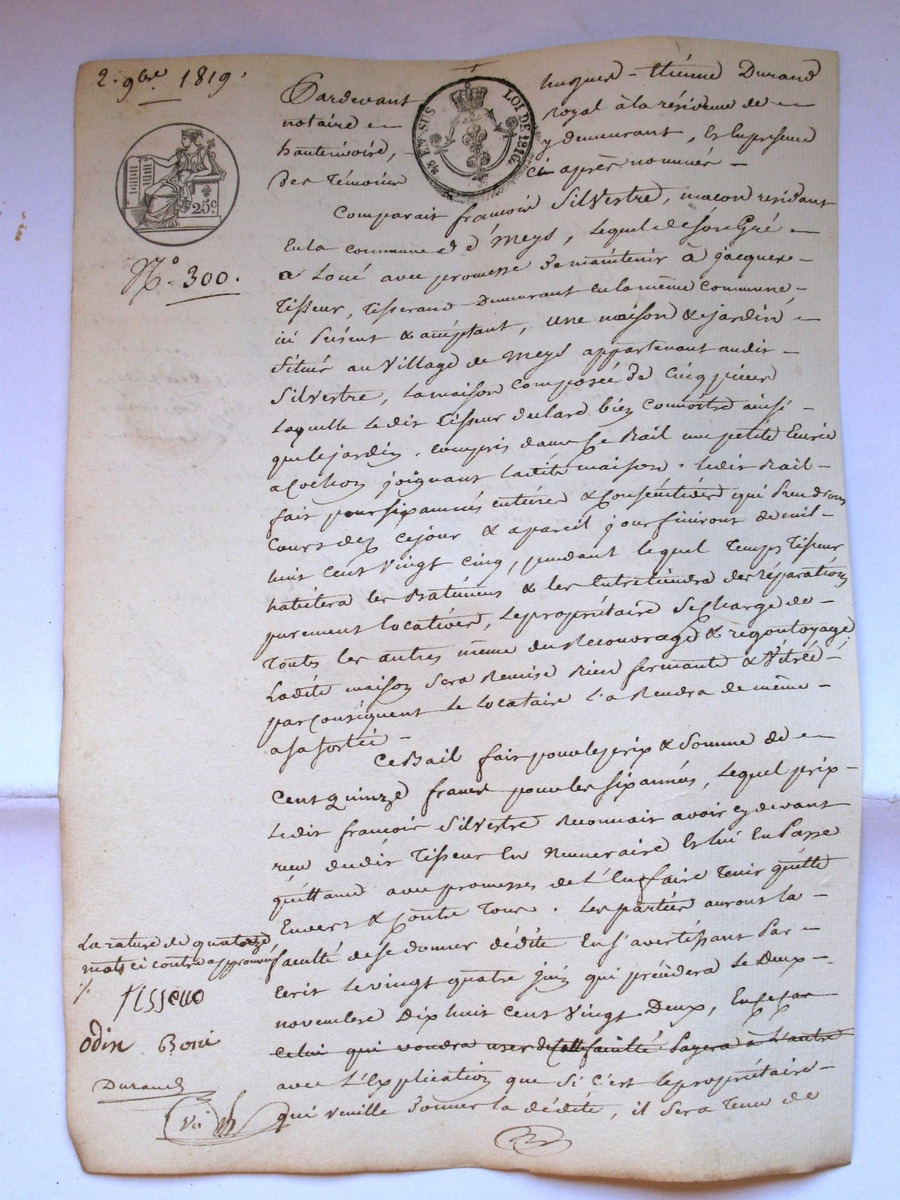 2. 9bre 1819.
25c
No. 300.
45 EN SUS LOI DE 1816.
Pardevant hugues - Etienne Durand
notaire royal à la résidence de
hauterivoire, y demeurant, Et En présence
des Témoins Ci après nommés -
Comparait françois Silvestre, maçon résidant
En la commune de Meys, Lequel de son Gré
a Loué avec promesse de maintenir à jacques
Tisseur, Tisserand Demeurant en la même commune
ici présent & acceptant, une maison & jardin
Situés au Village de Meys appartenant audit
Silvestre, la maison composée de Cinq pièces
Laquelle Ledit Tisseur déclare bien connoitre ainsi
que le jardin. compris dans ce Bail une petite Eurie
a Cochon joignant ladite maison. Ledit Bail
fait pour six années entières & Consécutives qui Prendront
Cours dez ce jour & a pareil jour finiront de mil
huit Cent Vingt Cinq, pendant lequel Temps Tisseur
habitera les Batimens & les Entretiendra des réparations
purement locatives, Le propriétaire Se Charge de
Toutes les autres même du Recouvrage & regoutoyage;
Ladite maison Sera Remise Bien fermante & Vitrée
par Conséquent Le Locataire La Rendra de même
a sa sortie -
Ce Bail fait pour le prix & Somme de
Cent quinze francs pour les six années, Lequel prix
Ledit françois Silvestre Reconnait avoir cy devant
reçu dudit Tisseur En Numeraire Et lui En Passe
quittance avec promesses de L'En faire Tenir quitte
Envers & Contre Tous. Les parties auront la
faculté de se donner dédite En s'avertissant Par
Ecrit Le vingt quatre juin qui précédera Le Deux
novembre Dix huit Cent Vingt Deux,
Celui qui voudra user de Cette faculté Payera à L'autre
avec L'Explication que Si C'est le propriétaire
qui veuille Donner la dédite, il Sera Tenu de
La rature de quatorze
mots ci contre approuvée
Tisseur
odin Boni
Durand